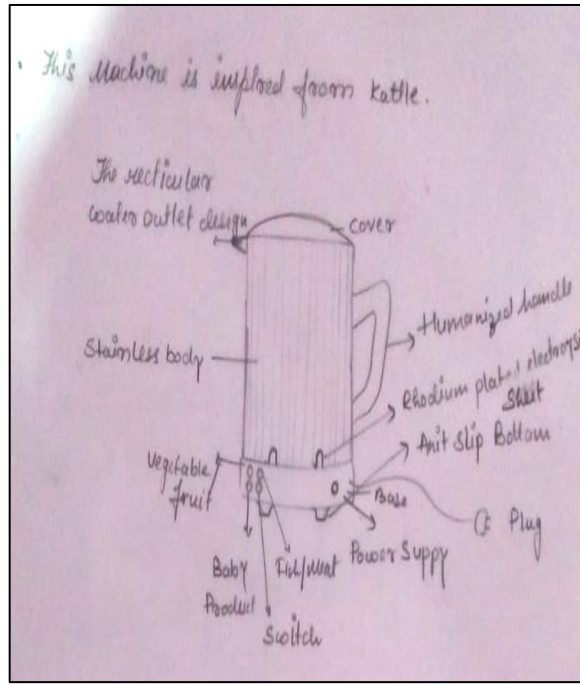 • This Machine is inspired from Kattle.
The recticular
water outlet design
cover
Humanized handle
Stainless body
Rhodium plated electroysi
Sheet
Anit Slip Bottom
Vegitable
fruit
Base
Plug
Baby
Product
Fish/Meat
Power Suppy
Switch